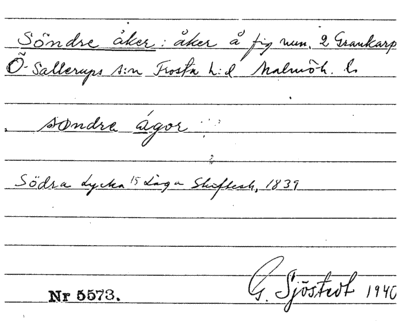 Söndre åker : åker å fig num. 2 Grankarp
Ö-Sallerups s:n Frosta h:d Malmöh. l.
söndre ågor
Södra Lycka 15 Laga Skiftesh, 1839
Nr 5573.
G. Sjöstedt 1940